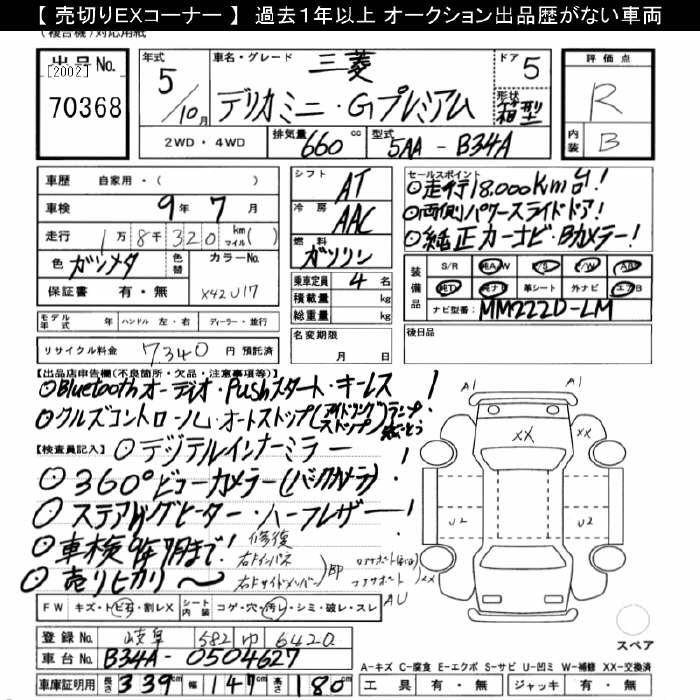 【 売切りEXコーナー 】 過去1年以上 オークション出品歴がない車両
(複合機)対応用紙
出品No.
[2002]
70368
年式
5/10月
車名・グレード
三菱
デリカミニ・Gプレミアム
ドア
5
形状
箱型
評価点
R
内装
B
2WD・4WD
排気量
660 cc
型式
5AA-B34A
車歴 自家用・( )
車検 9年 7月
走行 1万 8千 320 km マイル( )
色 ガンメタ
色替
カラーNo.
X42U17
保証書 有・無
シフト
AT
冷房
AAC
燃料
ガソリン
乗車定員 4 名
積載量 kg
総重量 kg
セールスポイント
◎走行18,000Km台!
◎両側パワースライドドア!
◎純正カーナビ・Bカメラ!
装備品
S/R 純A/W P/S P/W AAC
純TV 純ナビ 革シート 外ナビ エアB
ナビ型番: MM222D-LM
モデル年式 年 ハンドル 左・右 ディーラー・並行
リサイクル料金 7,340 円 預託済
名変期限
月 日
後日品
【出品店申告欄(不良箇所・欠品・注意事項等)】
◎Bluetoothオーディオ・Pushスタート・キーレス!
◎クルズコントロール・オートストップ(アイドリングストップ)
【検査員記入】
◎デジタルインナーミラー!
◎360°ビューカメラ(バックカメラ)!
◎ステアリングヒーター・ハーフレザー!
◎車検9年7月まで!
修復
右Fインパネ
右Fサイドメンバー
◎売りヒカリ〜
AU
XX
A1
A1
XX
XX
U2
U2
FW キズ・トビ石・割レX
シート内装
コゲ・穴・汚レ・シミ・破レ・スレ
登録No. 岐阜 582 ゆ 6420
車台No. B34A-0504627
車庫証明用 長さ 339 cm 幅 147 cm 高さ 180 cm
スペア
A-キズ C-腐食 E-エクボ S-サビ U-凹ミ W-補修 XX-交換済
工具 有・無 ジャッキ 有・無